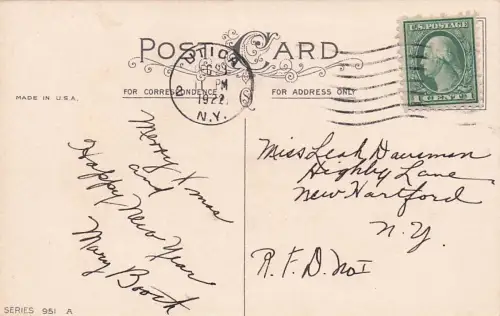 POST CARD
UTICA
PM
1922
N.Y.
2
U.S. POSTAGE
1 CENT 1
MADE IN U.S.A.
FOR CORRESPONDENCE
FOR ADDRESS ONLY
Merry Xmas
and
Happy New Year
Mary Booth
Miss Leah Dausman
Highby Lane
New Hartford
N.Y.
R.F.D. No 1
SERIES 951 A